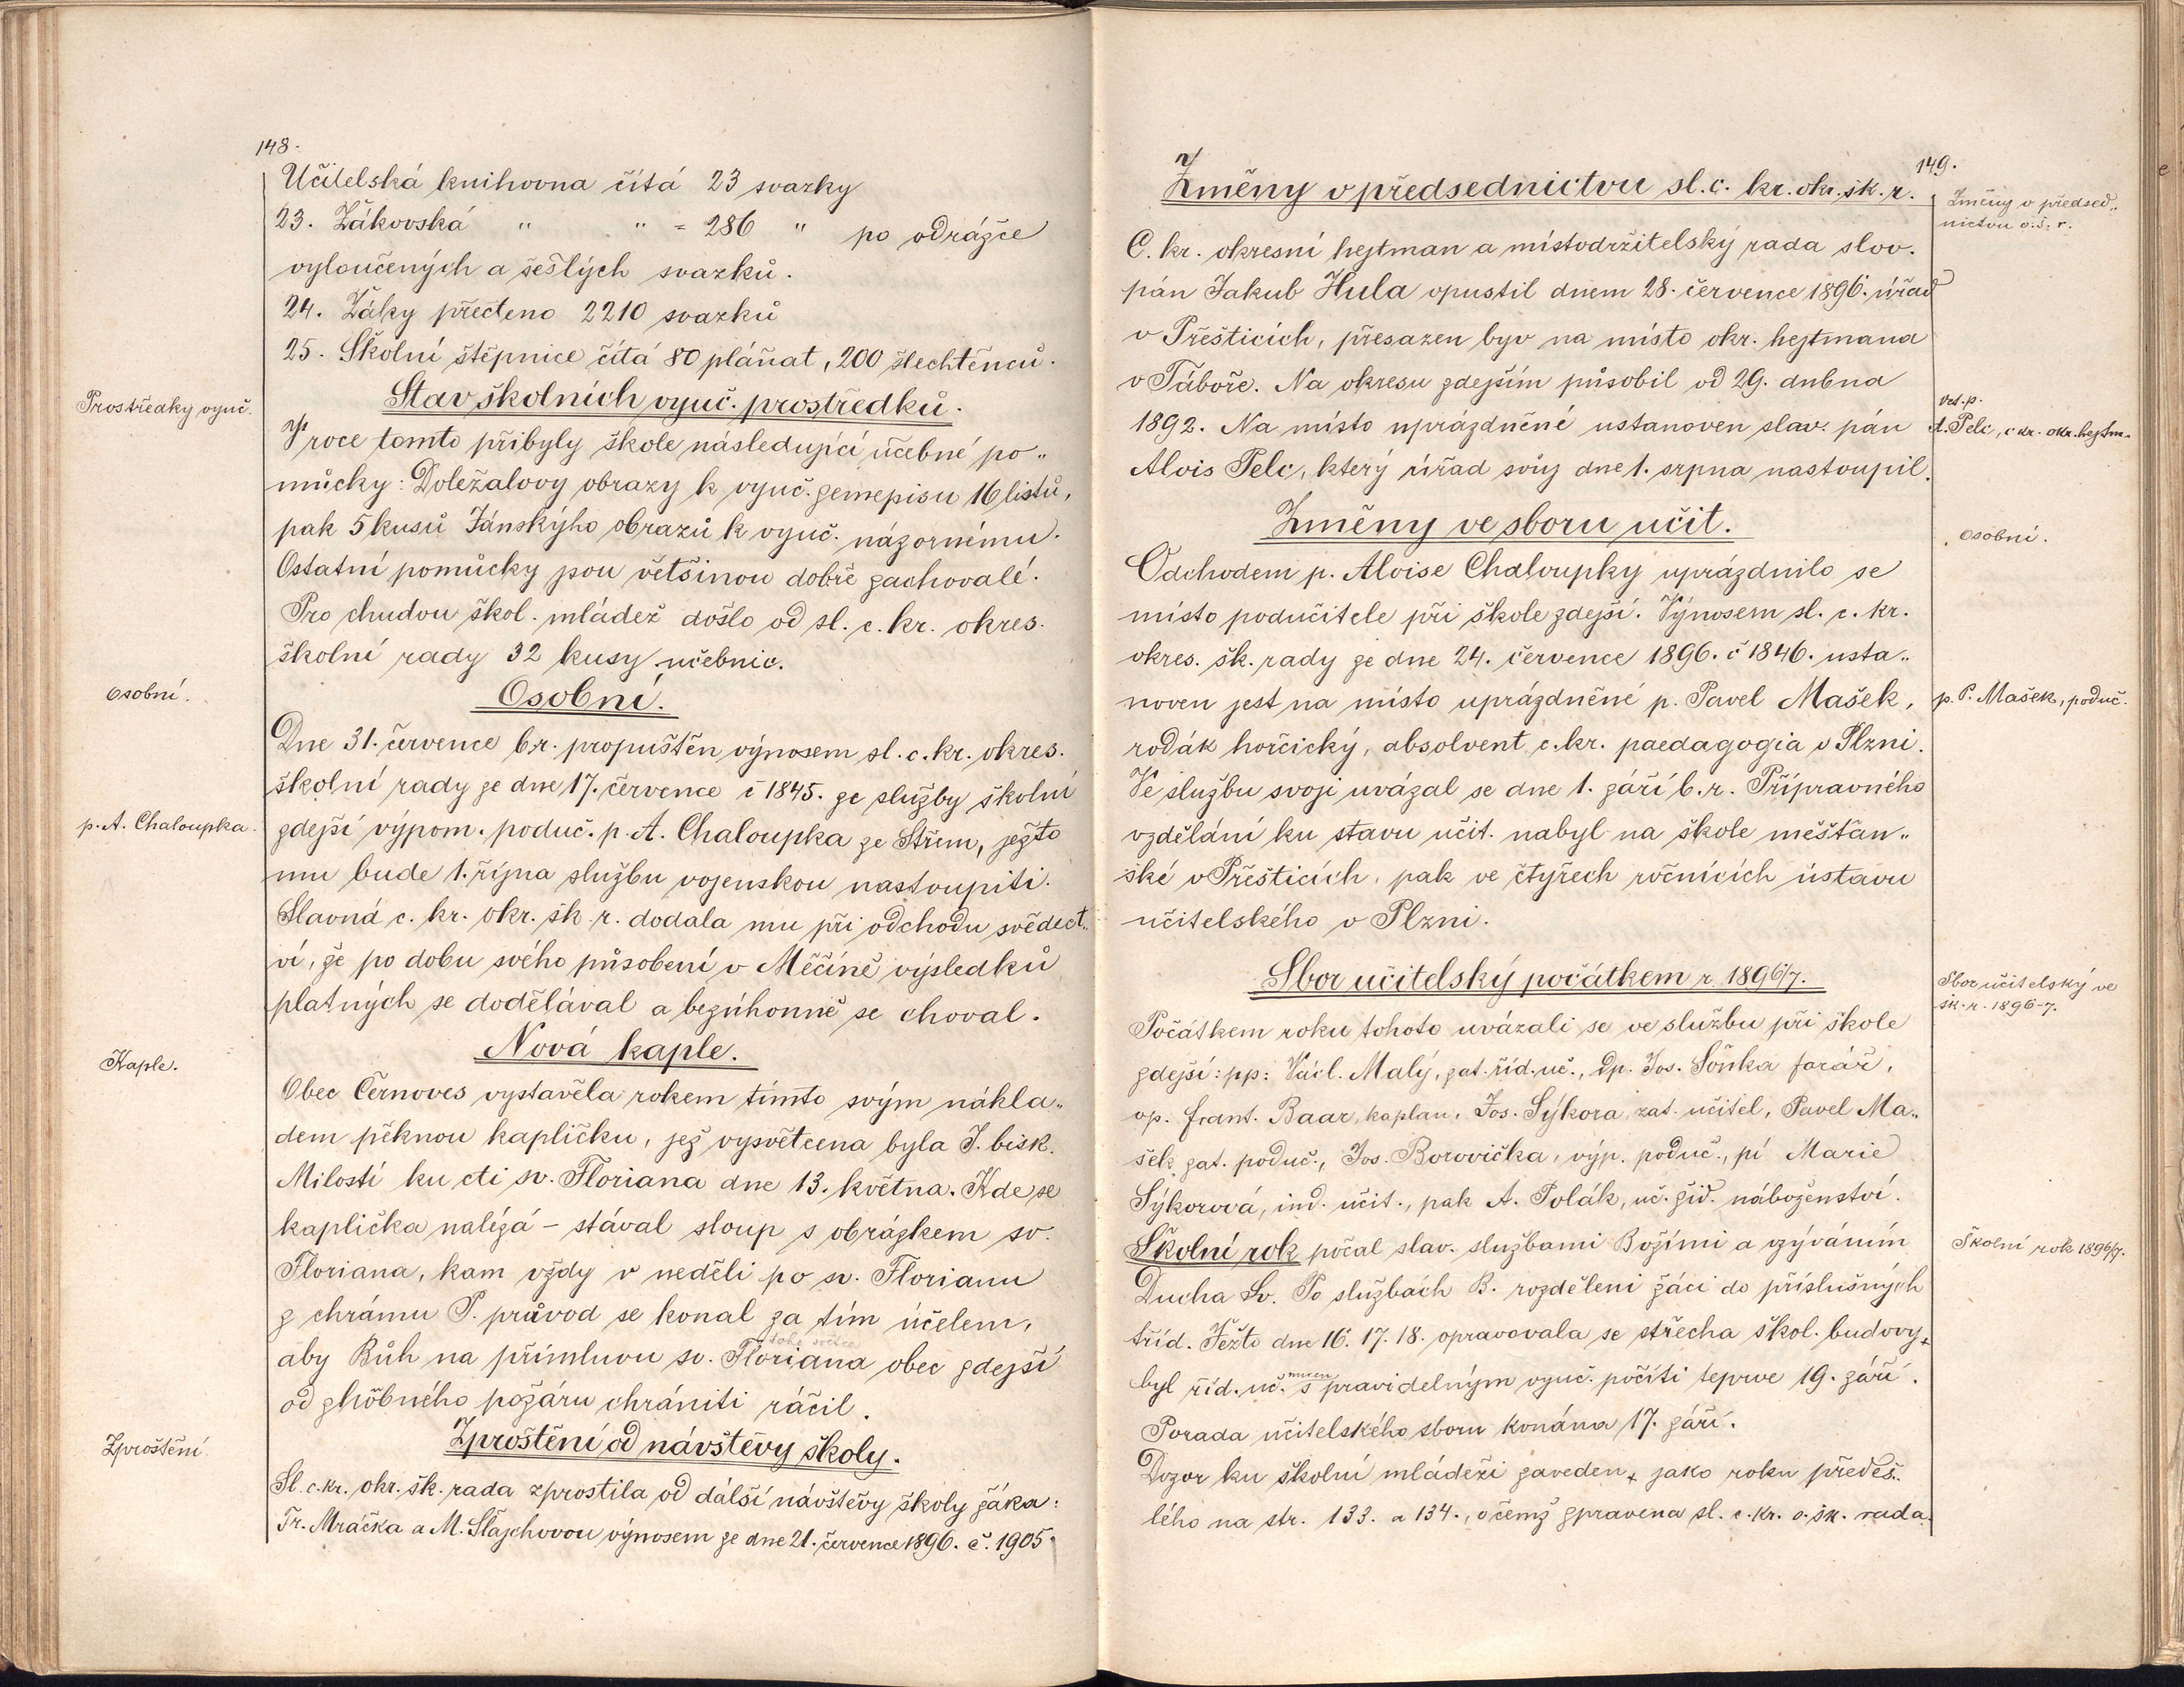 148.
Učitelská knihovna čítá 23 svazky
23. Žákovská " " = 286 " po odrážce
vyloučených a sešlých svazků.
24. Žáky přečteno 2210 svazků
25. Školní štěpnice čítá 80 pláňat, 200 šlechtěnců.
Prostředky vyuč.
Stav školních vyuč. prostředků.
V roce tomto přibyly škole následující učebné po„
můcky: Doležalovy obrazy k vyuč. zemepisu 16 listů,
pak 5 kusů Jánskýho obrazů k vyuč. názornému.
Ostatní pomůcky jsou většinou dobře zachovalé.
Pro chudou škol. mládež došlo od sl. c. kr. okres.
školní rady 32 kusy učebnic.
Osobní.
Osobní.
Dne 31. července b.r. propuštěn výnosem sl. c. kr. okres.
školní rady ze dne 17. července č 1845. ze služby školní
p. A. Chaloupka.
zdejší výpom. poduč. p. A. Chaloupka ze Střím, ježto
mu bude 1. října službu vojenskou nastoupiti.
Slavná c. kr. okr. šk. r. dodala mu při odchodu svědect„
ví, že po dobu svého působení v Měčíně výsledků
platných se dodělával a bezúhonně se choval.
Kaple.
Nová kaple.
Obec Černoves vystavěla rokem tímto svým nákla„
dem pěknou kapličku, jež vysvětcena byla J. bisk.
Milostí ku cti sv. Floriana dne 13. května. Kde se
kaplička nalézá – stával sloup s obrázkem sv.
Floriana, kam vždy v neděli po sv. Florianu
z chrámu P. průvod se konal za tím účelem,
toho světce
aby Bůh na přímluvu sv. Floriana obec zdejší
od zhoubného požáru chrániti ráčil.
Zproštění
Zproštění od návštěvy školy.
Sl. c. kr. okr. šk. rada zprostila od další návštěvy školy žáka:
Fr. Mráčka a M. Šlajchovou výnosem ze dne 21. července 1896. č. 1905.
149.
Změny v předsednictvu sl. c. kr. okr. šk. r.
Změny v předsed„
nictvu o. š. r.
C. kr. okresní hejtman a místodržitelský rada slov.
pán Jakub Hula opustil dnem 28. července 1896. úřad
v Přešticích, přesazen byv na místo okr. hejtmana
v Táboře. Na okresu zdejším působil od 29. dubna
1892. Na místo uprázdněné ustanoven slav. pán
vzt. p.
A. Pelc, c kr. okr. hejtm.
Alois Pelc, který úřad svůj dne 1. srpna nastoupil.
Změny ve sboru učit.
Osobní.
Odchodem p. Aloise Chaloupky uprázdnilo se
místo podučitele při škole zdejší. Výnosem sl. c. kr.
okres. šk. rady ze dne 24. července 1896. č 1846. usta„
noven jest na místo uprázdněné p. Pavel Mašek,
p. P. Mašek, poduč.
rodák horčický, absolvent c. kr. paedagogia v Plzni.
Ve službu svoji uvázal se dne 1. září b. r. Přípravného
vzdělání ku stavu učit. nabyl na škole měšťan„
ské v Přešticích, pak ve čtyřech ročnících ústavu
učitelského v Plzni.
Sbor učitelský počátkem r. 1896/7.
Sbor učitelský ve
šk. r. 1896-7.
Počátkem roku tohoto uvázali se ve službu při škole
zdejší: pp: Václ. Malý, zat. říd. uč., Dp. Jos. Soňka farář,
vp. Frant. Baar, kaplan, Jos. Sýkora, zat. učitel, Pavel Ma„
šek zat. poduč., Jos. Borovička, výp. poduč., pí Marie
Sýkorová, ind. učit., pak A. Polák, uč. žid. náboženství.
Školní rok počal slav. službami Božími a vzýváním
Školní rok 1896/7.
Ducha Sv. Po službách B. rozděleni žáci do příslušných
tříd. Ježto dne 16. 17. 18. opravovala se střecha škol. budovy,
nucen
byl říd. uč. s pravidelným vyuč. počíti teprve 19. září.
Porada učitelského sboru konána 17. září.
Dozor ku školní mládeži zaveden, jako roku předeš„
lého na str. 133. a 134., o čemž zpravena sl. c. kr. o. šk. rada.